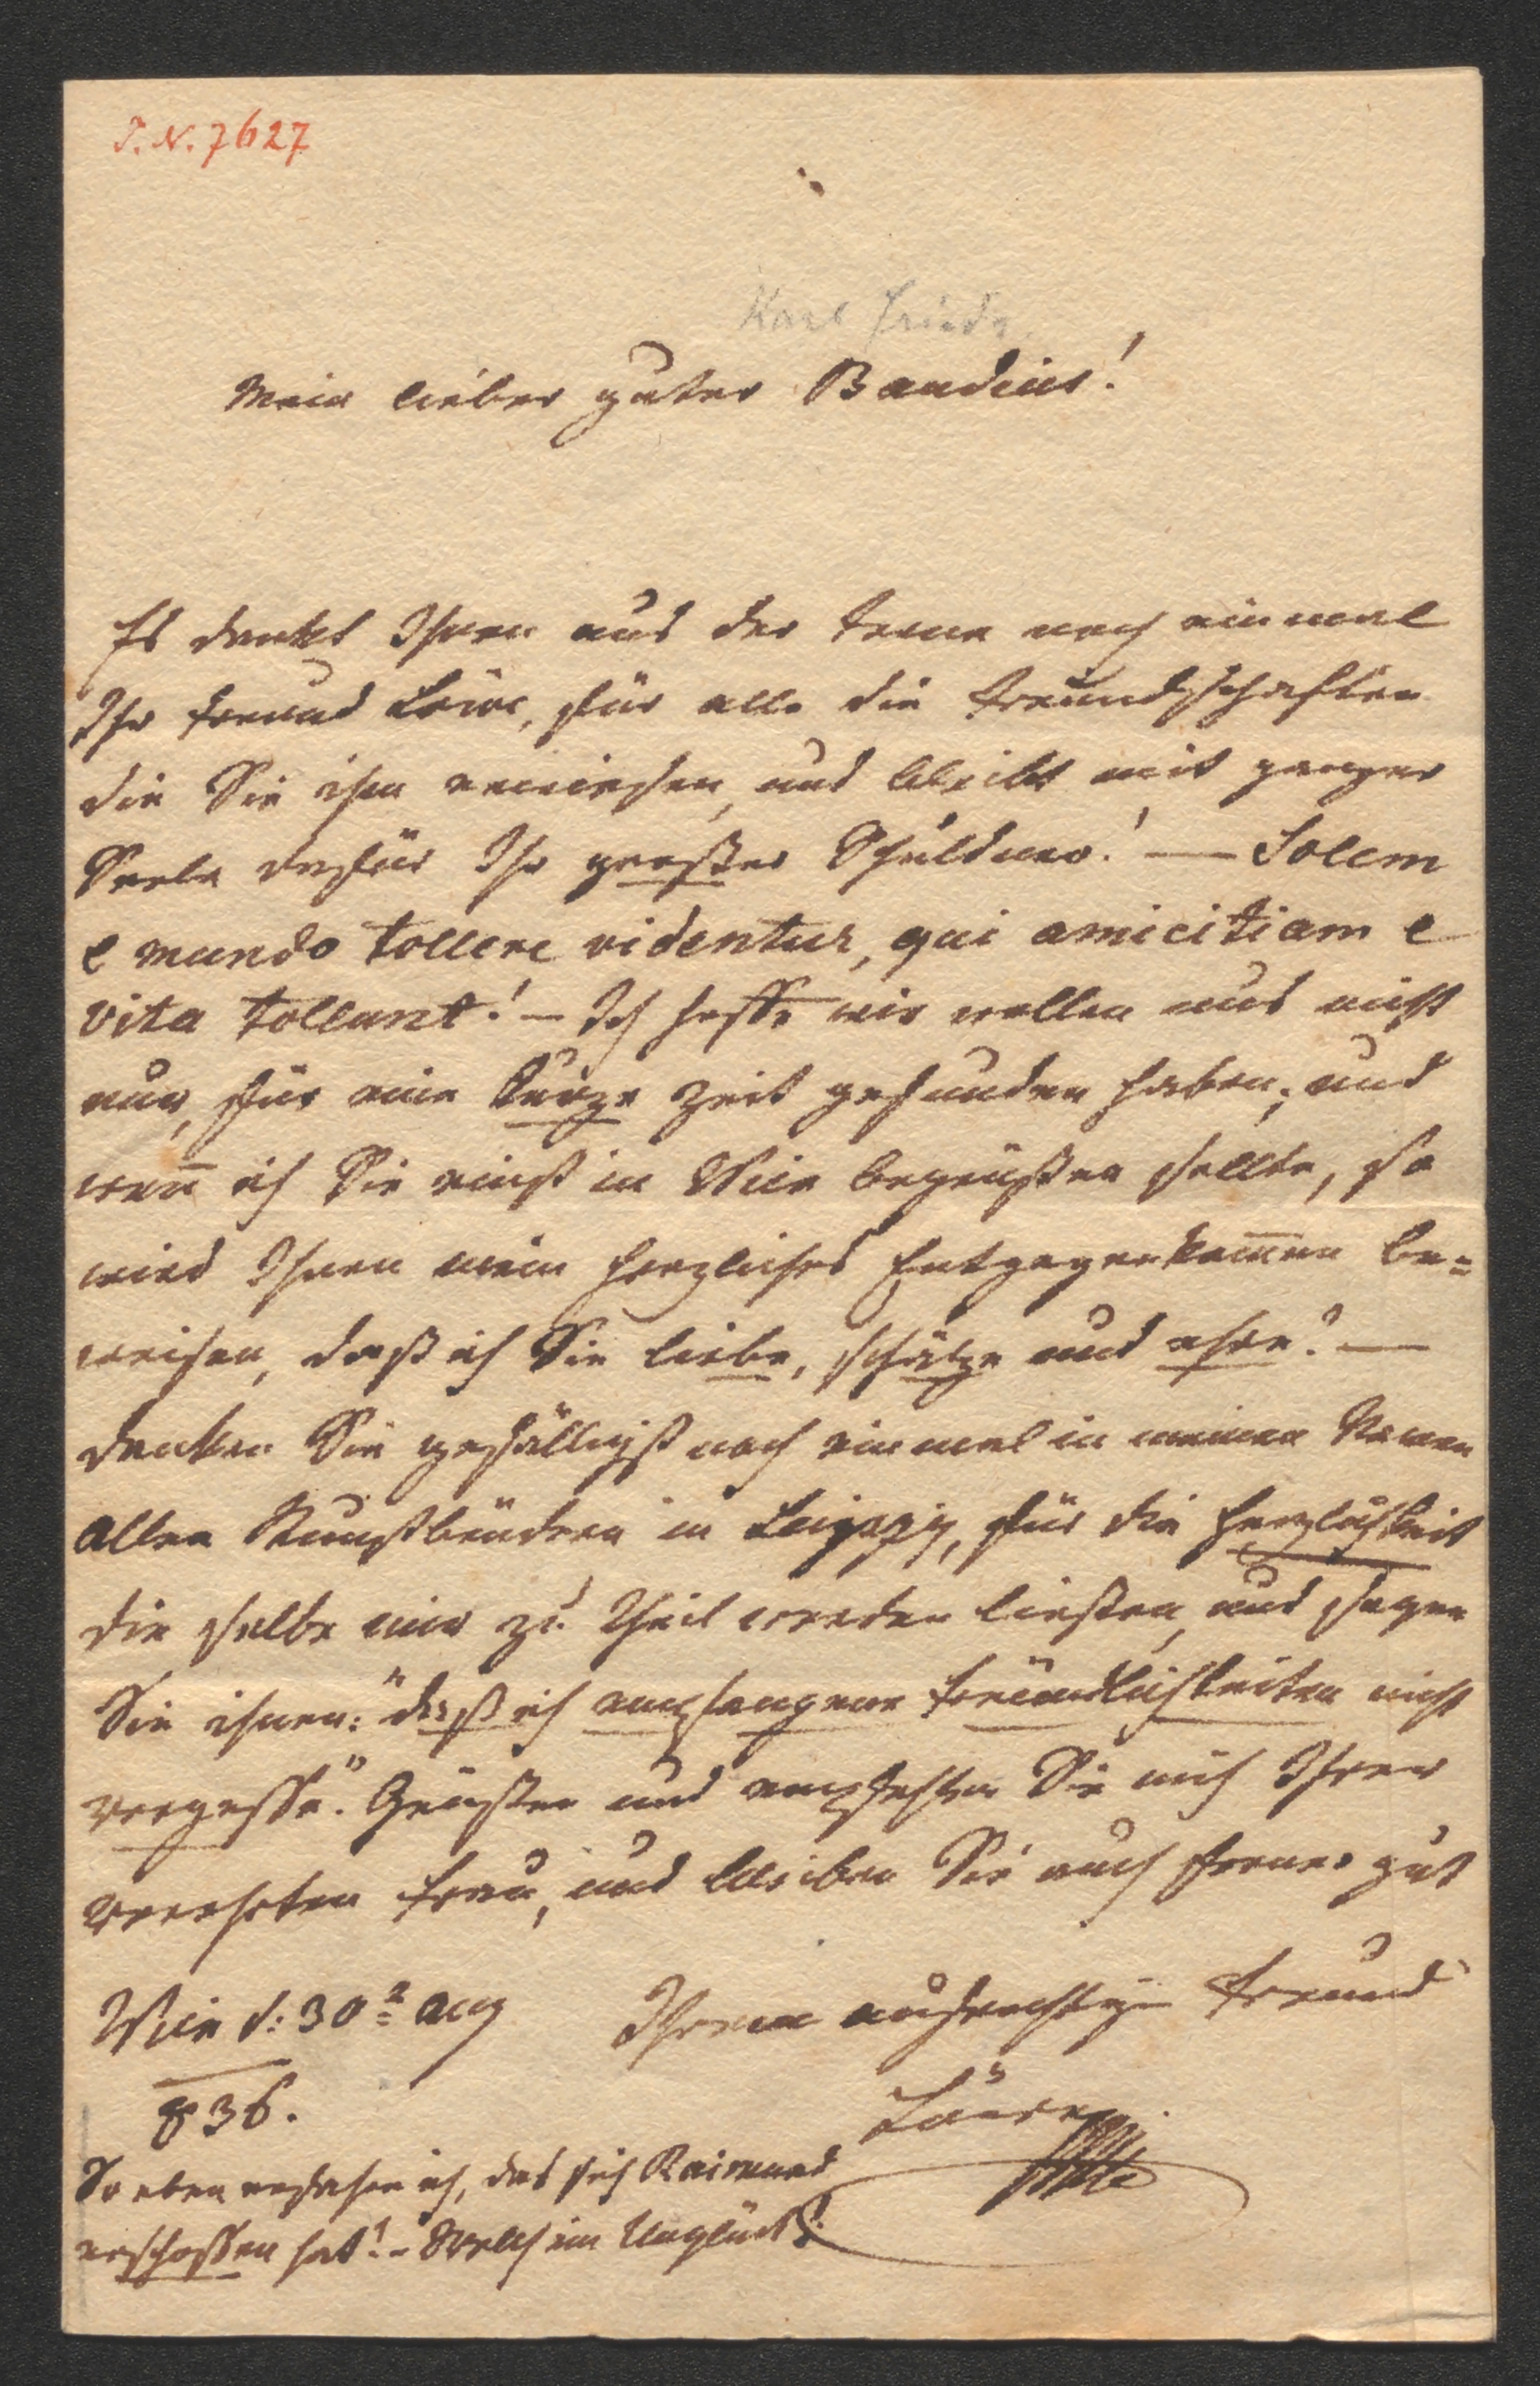 I. N. 7627
Karl Friedr.
Mein lieber guter Baudius!
Es dankt Ihnen aus der Ferne noch einmal
Ihr Freund Löwe, für alle die Freundschaften
die Sie ihm erwiesen, und bleibt mit ganzer
Seele dafür Ihr großer Schuldner! — Solem
e mundo tollere videntur, qui amicitiam e
vita tollunt! — Ich hoffe wir wollen uns nicht
nur, für eine kurze Zeit gefunden haben; und
wen̄ ich Sie einst in Wien begrüßen sollte, so
wird Ihnen mein herzliches Entgegenkom̄en be=
weisen, daß ich Sie liebe, schätze und ehre! —
danken Sie gefälligst noch einmal in meinen Namen
allen Kunstbrüdern in Leipzig, für die Herzlichkeit
die selbe mir zu Theil werden ließen, und sagen
Sie ihnen: "daß ich empfangene Freündlichkeiten nicht
vergesse". Grüßen und empfehlen Sie mich Ihrer
verehrten Frau, und bleiben Sie auch ferner gut
Wien d: 30t Aug Ihrem aufrichtigen Freund
836. Löwe
So eben erfahre ich, das sich Raimund
erschoßen hat! - Welch ein Unglück!